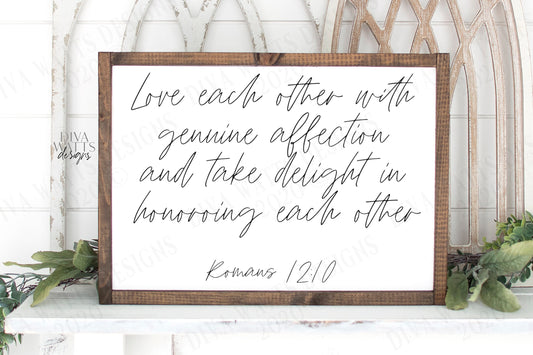 Love each other with
genuine affection
and take delight in
honoroing each other
Romans 12:10
DIVA
WATTS
designs
DIVA WATTS DESIGNS
2020